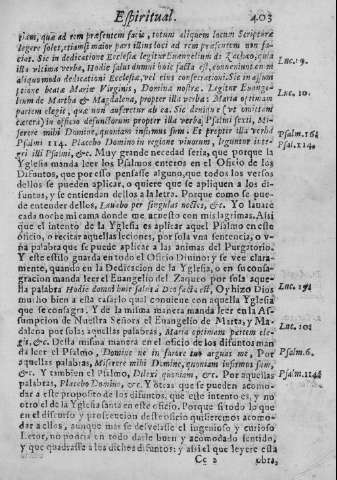 Espiritual. 403
riam, quæ ad rem præsentem facit, totum aliquem locum Scripturæ
legere solet, etiamsi maior pars illius loci ad rem præsentem non fa-
ciat. Sic in dedicatione Ecclesiæ legitur Euangelium de Zachæo, quia
illa vltima verba, Hodie salus domui huic facta est, conueniunt en m
aliquo modo dedicationi Ecclesiæ, vel eius consecrationi. Sic in assum
ptione beatæ Mariæ Virginis, Domina nostra. Legitur Euange-
lium de Martha & Magdalena, propter illa verba: Maria optimam
partem elegit, quæ non auferetur ab ea. Sic denique (vt omittam
cætera) in officio defunctorum propter illa verba, Psalmi sexti, Mi-
serere mihi Domine, quoniam infirmus sum. Et propter illa verba
Psalmi 114. Placebo Domino in regione viuorum, leguntur inte-
gri illi Psalmi, &c. Muy grande necedad seria, que porque la
Yglesia manda leer los Psalmos enteros en el Oficio de los
Difuntos, que por esso pensasse alguno, que todos los versos
dellos se pueden aplicar, o quiere que se apliquen a los di-
funtos, y se entiendan dellos a la letra. Porque como se pue-
de entender dellos, Lauabo per singulas noctes, &c. Yo lauare
cada noche mi cama donde me acuesto con mis lagrimas. Assi
que el intento de la Yglesia es aplicar aquel Psalmo en este
oficio, o recitar aquellas leciones, por sola vna sentencia, o v-
na palabra que se puede aplicar a las animas del Purgatorio.
Y este estilo guarda en todo el Oficio Diuino: y se vee clara-
mente, quando en la Dedicacion de la Yglesia, o en su consa-
gracion manda leer el Euangelio del Zaqueo por sola aque-
lla palabra Hodie domui huic salus a Deo facta est, Oy hizo Dios
mucho bien a esta casa: lo qual conuiene con aquella Yglesia
que se consagra. Y de la misma manera manda leer en la As-
sumpcion de Nuestra Señora el Euangelio de Marta, y Ma-
dalena por solas aquellas palabras, Maria optimam partem ele-
git, &c. Desta misma manera en el oficio de los difuntos man
da leer el Psalmo, Domine ne in furore tuo arguas me, Por
aquellas palabras, Miserere mihi Domine, quoniam infirmus sum,
&c. Y tambien el Psalmo, Dilexi quoniam, &c. Por aquellas
palabras, Placebo Domino, &c. Y otras que se pueden acomo-
dar a este proposito de los difuntos, que este intento es, y no
otro el de la Yglesia santa en este oficio. Porque si todo lo que
en el discurso y prosecucion deste oficio quisieremos acomo-
dar a ellos, aunque mas se desvelasse el ingenioso y curioso
Letor, no podria en todo darle buen y acomodado sentido,
y que quadrasse a los dichos difuntos: y assi el que leyere esta
Cc 2 obra,
Luc. 19.
Luc. 10.
Psalm. 6.